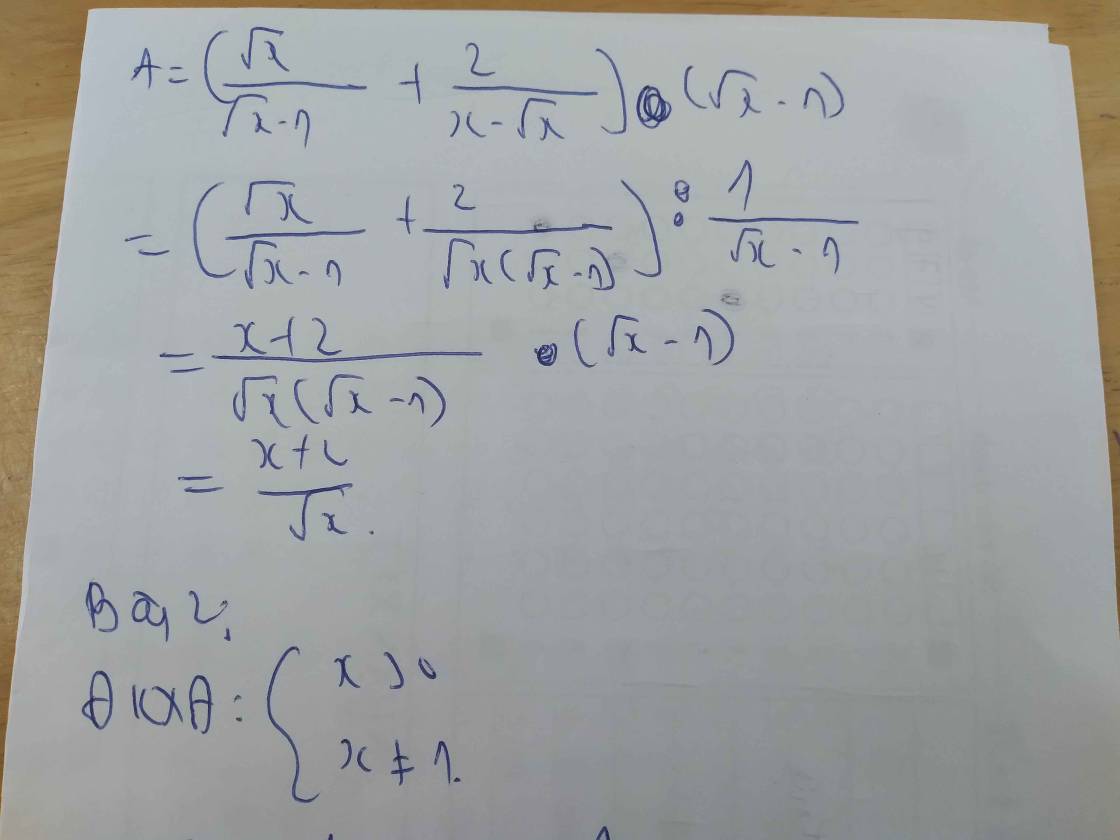 A = (√x/(√x-1) + 2/(x-√x)) • (√x - 1)
= (√x/(√x-1) + 2/(√x(√x-1))) : 1/(√x - 1)
= (x+2)/(√x(√x-1)) • (√x - 1)
= (x+2)/√x.
Bài 2:
ĐKXĐ: { x > 0
x ≠ 1.